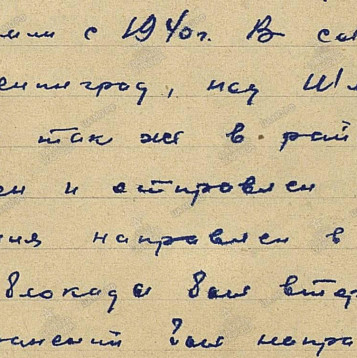 с 1940г. В
енинград, над Шл
так же в рай
ен и отправлен
ния направлен в
блокада был втор
ранений был напра